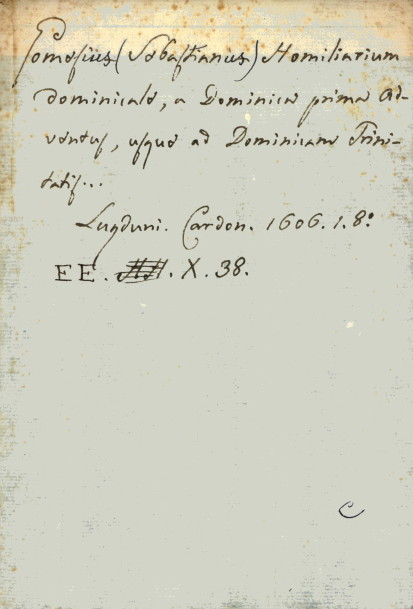 Gomesius (Sebastianus) Homiliarium
dominicale, a Dominica prima Ad-
ventus, usque ad Dominicam Trini-
tatis...
Lugduni. Cardon. 1606. 1. 8.º
EE. X. 38.
C